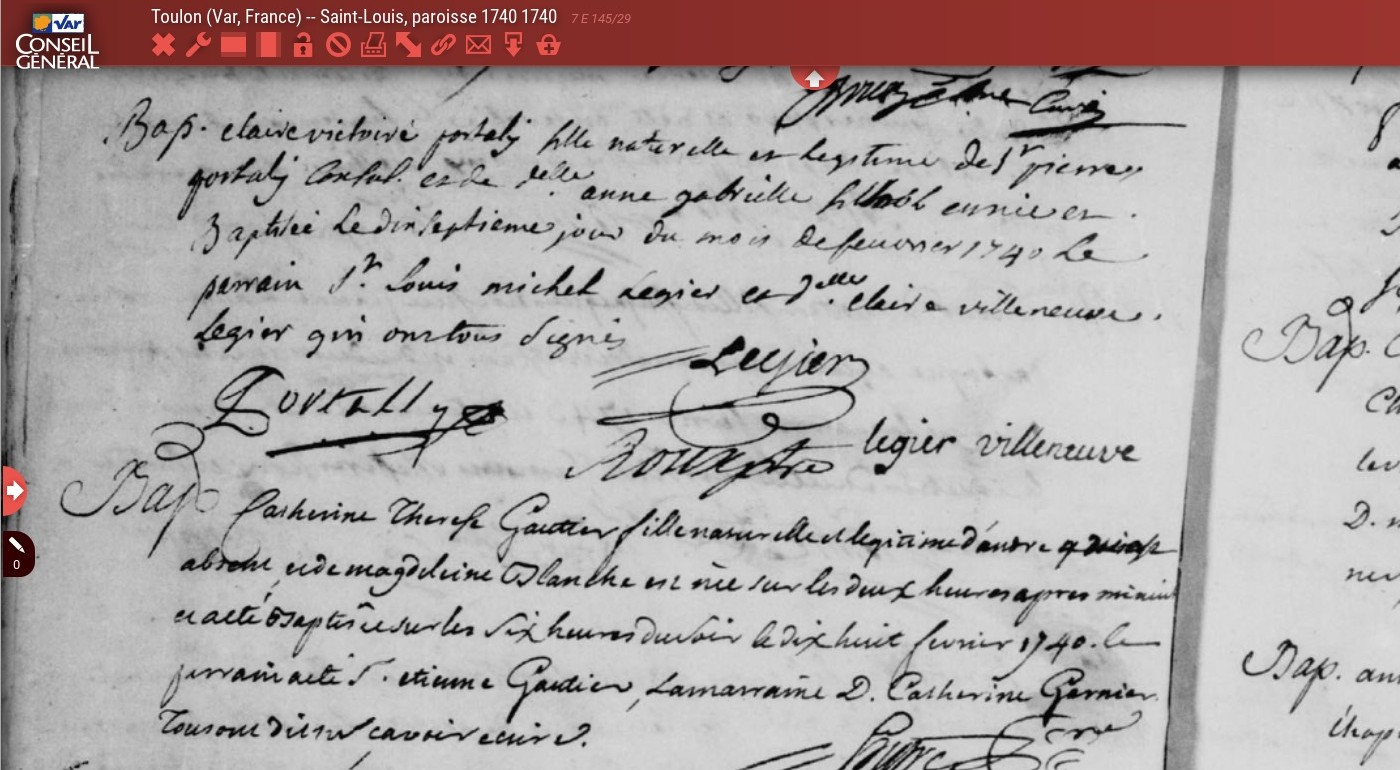 Toulon (Var, France) -- Saint-Louis, paroisse 1740 1740 7 E 145/29
VAR
CONSEIL
GÉNÉRAL
Bap. claire victoire portaly fille naturelle et legitime de Sr pierre
portaly Consul et de delle anne gabrielle est née et
Baptisée Le dixseptieme jour du mois de feuvrier 1740 Le
parrain Sr. Louis michel Legier et delle claire villeneuve
Legier qui ont tous signés
Legier
Portally
legier villeneuve
Bap Catherine Therese Gautier fille naturelle et legitime d'andre
absent et de magdeleine Blanche est née sur les deux heures apres minuit
et a eté Baptisée sur les six heures du soir le dix huit fevrier 1740. le
parrain a eté S. etienne Gautier, La marraine D. Catherine Garnier
Tous ont dit ne scavoir ecrire.
0
Bap.
D.
Bap.